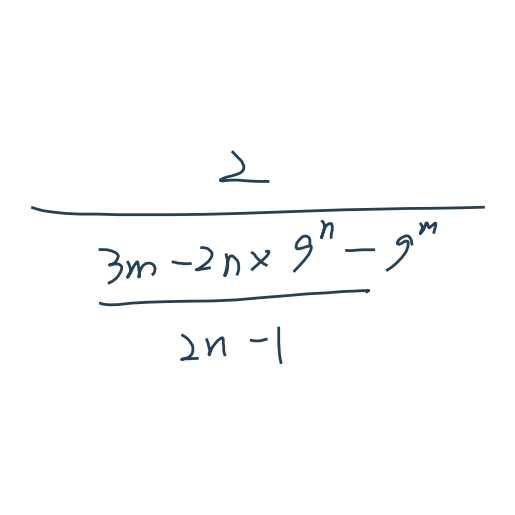 2
3m - 2n × 9^n - 9^m
2n - 1